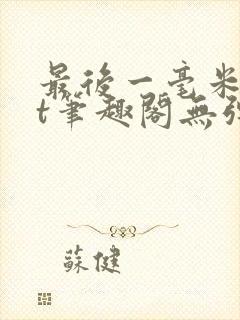 最後一毫米
t筆趣閣無弹
蘇健